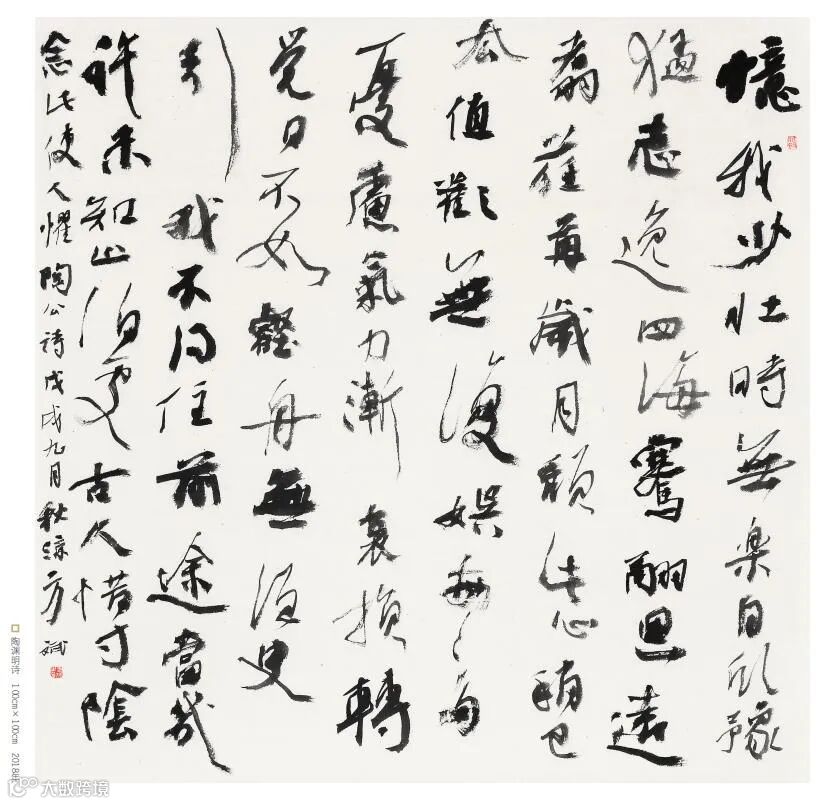 憶我少壯時無樂自欣豫
猛志逸四海騫翮思遠
翥荏苒歲月頹此心稍已
去值歡無復娛每々多
憂慮氣力漸衰損轉
覺日不如壑舟無須臾
引我不得住前途當幾
許未知止泊處古人惜寸陰
念此使人懼陶公詩戊戌九月秋涼方斌
陶渊明诗 100cm×100cm 2018年
大数跨境